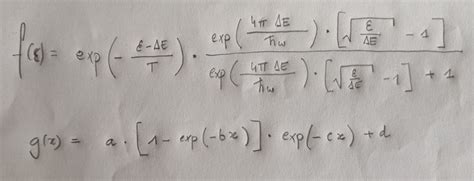 f(ε) = exp(- (ε-ΔE)/T) · (exp(4π ΔE/ħω) · [√(ε/ΔE) - 1])/(exp(4π ΔE/ħω) · [√(ε/ΔE) - 1] + 1)
g(x) = a · [1 - exp(-bx)] · exp(-cx) + d